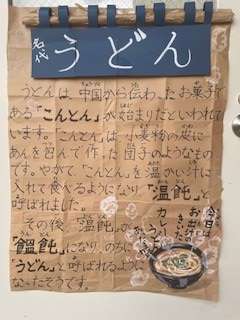 名代
うどん
うどんは、中国から伝わったお菓子で
ある「こんとん」が始まりだといわれて
います。「こんとん」は小麦粉の皮に
あんを包んで作った団子のようなもの
です。やがて「こんとん」を温かい汁に
入れて食べるようになり「温飩」と
呼ばれました。
その後「温飩」の
「饂飩」になり、のちに
「うどん」と呼ばれるように
なったそうです。
今日は
お出汁の
きいた
カレーうどん